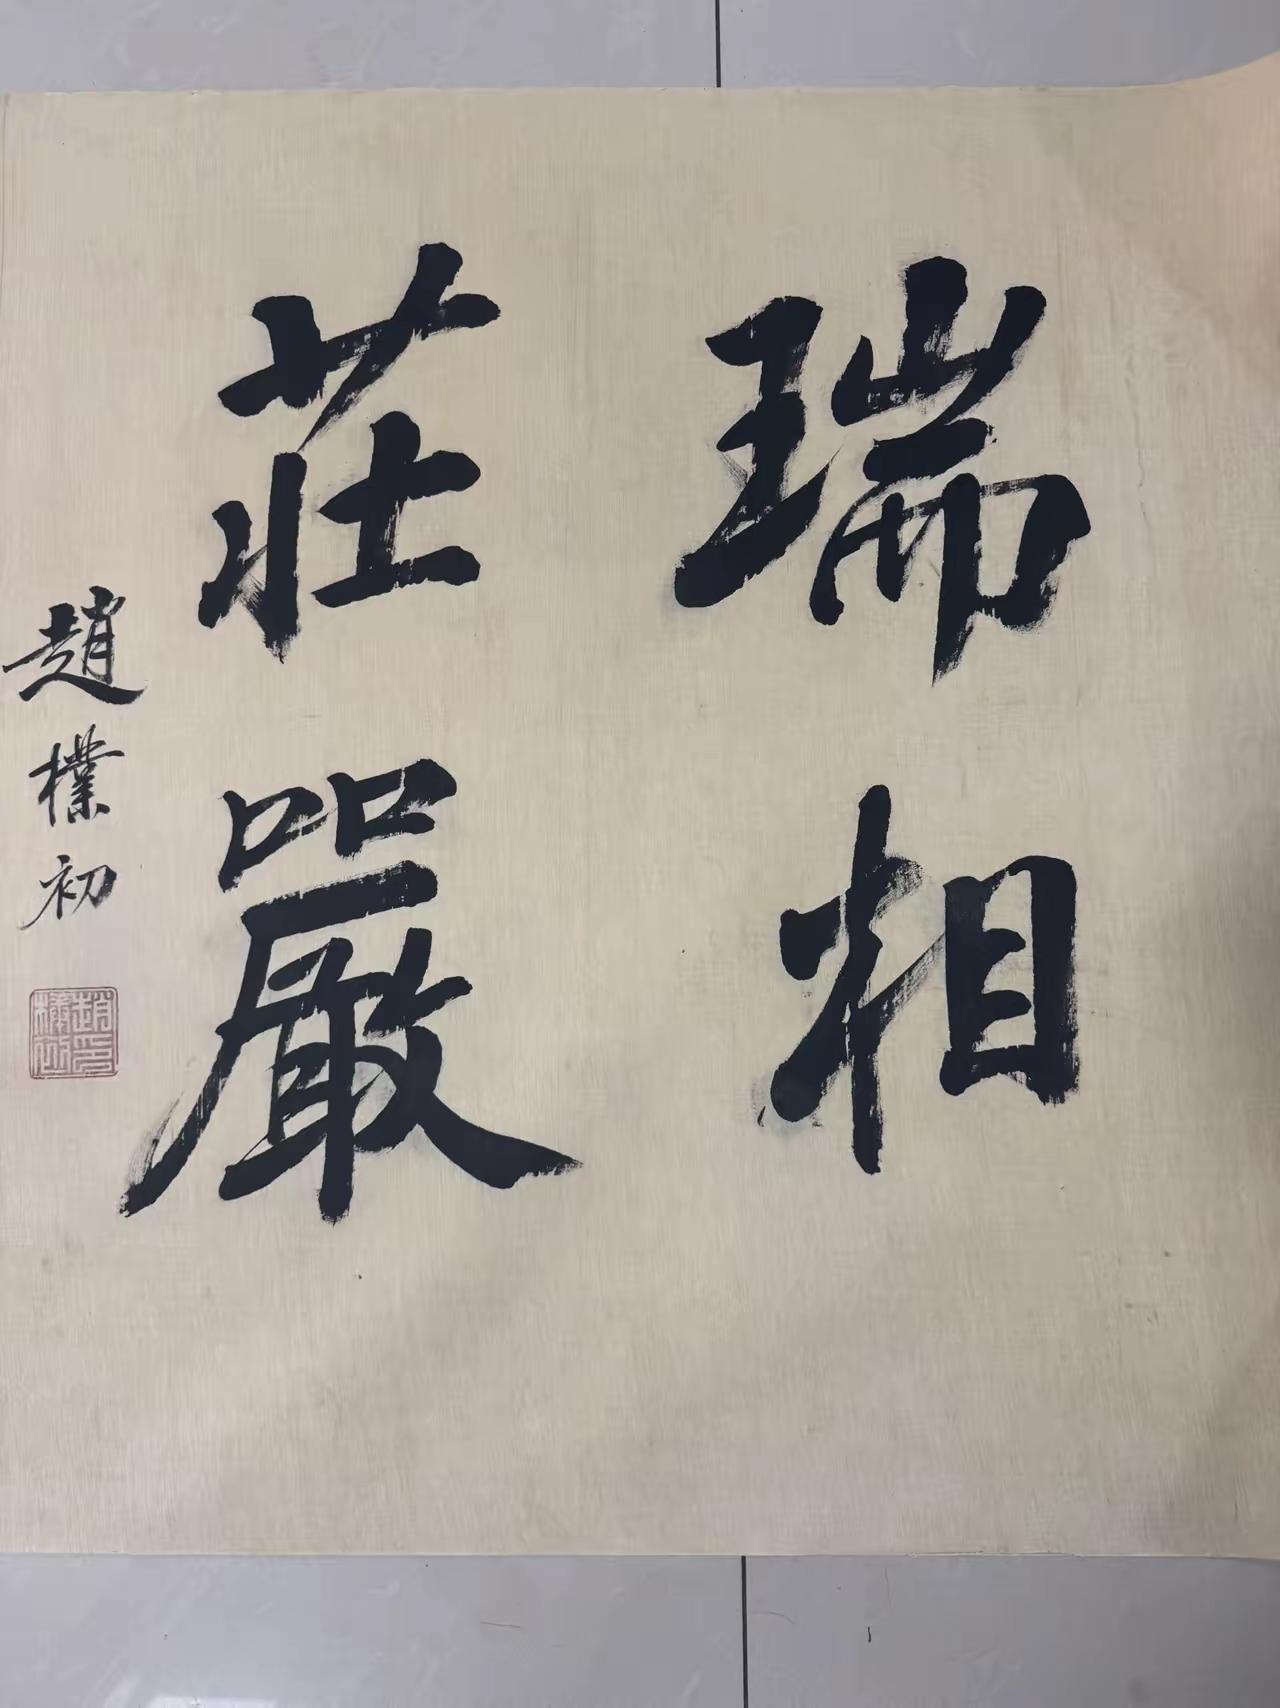 瑞相
莊嚴
趙樸初
趙樸初印